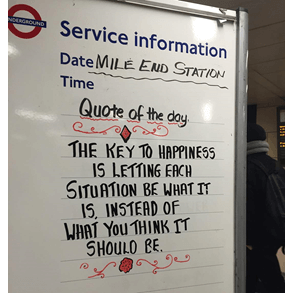 UNDERGROUND
Service information
Date MILE END STATION
Time
Quote of the day
THE KEY TO HAPPINESS
IS LETTING EACH
SITUATION BE WHAT IT
IS, INSTEAD OF
WHAT YOU THINK IT
SHOULD BE.